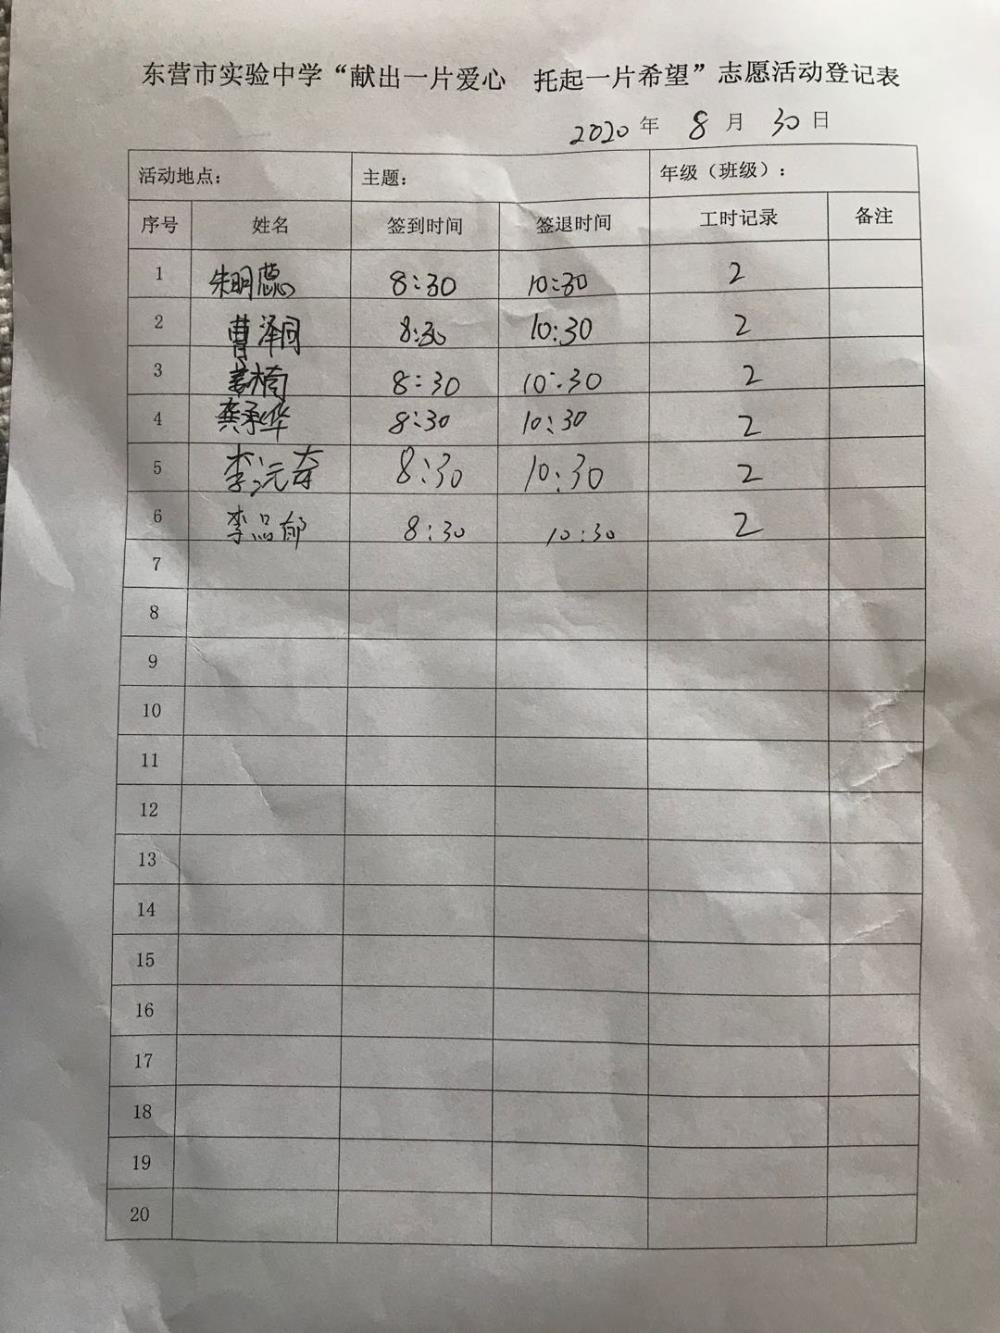 东营市实验中学“献出一片爱心 托起一片希望”志愿活动登记表
2020年 8月 30日
活动地点： 主题： 年级（班级）：
序号 姓名 签到时间 签退时间 工时记录 备注
1 朱明蕊 8:30 10:30 2
2 曹泽同 8:30 10:30 2
3 姜楠 8:30 10:30 2
4 龚承华 8:30 10:30 2
5 李沅奇 8:30 10:30 2
6 李品郁 8:30 10:30 2
7
8
9
10
11
12
13
14
15
16
17
18
19
20